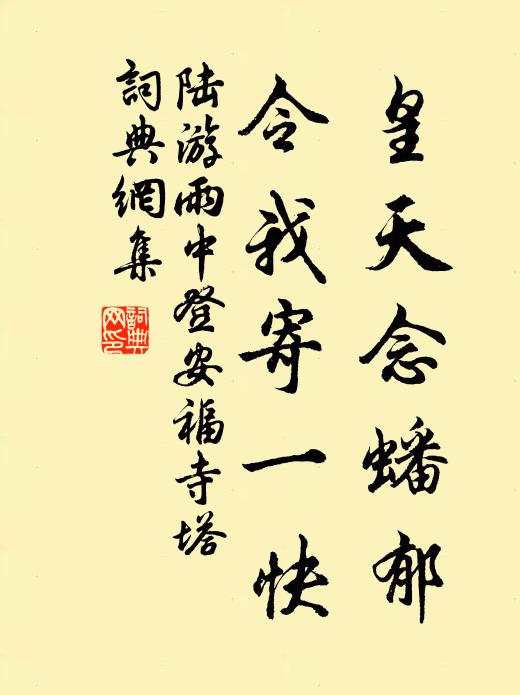 皇天念蟠郁
令我寄一快
陆游雨中登安福寺塔
詞典網集
詞典
网印